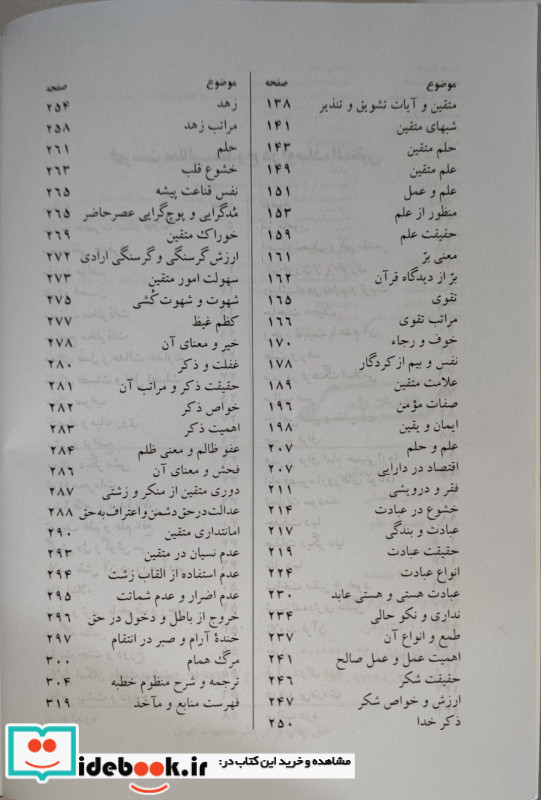 موضوع صفحه
متقین و آیات تشویق و تنذیر ۱۳۸
شبهای متقین ۱۴۱
حلم متقین ۱۴۳
علم متقین ۱۴۹
علم و عمل ۱۵۱
منظور از علم ۱۵۳
حقیقت علم ۱۵۹
معنی برّ ۱۶۱
برّ از دیدگاه قرآن ۱۶۲
تقوی ۱۶۵
مراتب تقوی ۱۶۶
خوف و رجاء ۱۷۰
نفس و بیم از کردگار ۱۷۸
علامت متقین ۱۸۹
صفات مؤمن ۱۹۶
ایمان و یقین ۱۹۸
علم و حلم ۲۰۷
اقتصاد در دارایی ۲۰۷
فقر و درویشی ۲۱۱
خشوع در عبادت ۲۱۴
عبادت و بندگی ۲۱۷
حقیقت عبادت ۲۱۹
انواع عبادت ۲۲۴
عبادت هستی و هستی عابد ۲۳۰
نداری و نکو حالی ۲۳۴
طمع و انواع آن ۲۳۷
اهمیت عمل و عمل صالح ۲۴۱
حقیقت شکر ۲۴۶
ارزش و خواص شکر ۲۴۷
ذکر خدا ۲۵۰
موضوع صفحه
زهد ۲۵۴
مراتب زهد ۲۵۸
حلم ۲۶۱
خشوع قلب ۲۶۳
نفس قناعت پیشه ۲۶۵
مُدگرایی و پوچ‌گرایی عصر حاضر ۲۶۵
خوراک متقین ۲۶۹
ارزش گرسنگی و گرسنگی ارادی ۲۷۲
سهولت امور متقین ۲۷۳
شهوت و شهوت کُشی ۲۷۵
کظم غیظ ۲۷۷
خیر و معنای آن ۲۷۸
غفلت و ذکر ۲۸۰
حقیقت ذکر و مراتب آن ۲۸۱
خواص ذکر ۲۸۲
اهمیت ذکر ۲۸۳
عفو ظالم و معنی ظلم ۲۸۴
فحش و معنای آن ۲۸۶
دوری متقین از منکر و زشتی ۲۸۷
عدالت در حق دشمن و اعتراف به حق ۲۸۸
امانتداری متقین ۲۹۰
عدم نسیان در متقین ۲۹۳
عدم استفاده از القاب زشت ۲۹۴
عدم اضرار و عدم شماتت ۲۹۵
خروج از باطل و دخول در حق ۲۹۶
خندهٔ آرام و صبر در انتقام ۲۹۷
مرگ همام ۳۰۰
ترجمه و شرح منظوم خطبه ۳۰۴
فهرست منابع و مآخذ ۳۱۹
iidebook.ir
مشاهده و خرید این کتاب در: